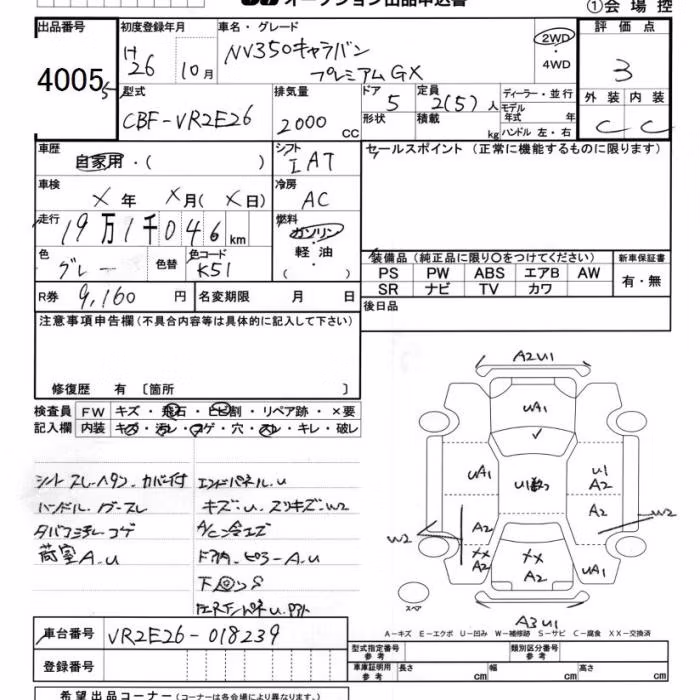 オークション出品申込書
①会場控
出品番号 初度登録年月 車名・グレード 評価点
4005 H26 10月 NV350キャラバン プレミアムGX 2WD・4WD 3
型式 排気量 ドア 定員 ディーラー・並行 外装 内装
CBF-VR2E26 2000cc 5 2(5)人 モデル年式 年 C C
形状 積載 kg ハンドル 左・右
車歴 シフト セールスポイント (正常に機能するものに限ります)
自家用・( ) IAT
車検 冷房
X年 X月(X日) AC
走行 燃料
19万1千046km ガソリン・軽油・( )
色 色替 色コード 装備品 (純正品に限り○をつけてください) 新車保証書
グレー K51 PS PW ABS エアB AW 有・無
SR ナビ TV カワ
R券 9,160円 名変期限 月 日 後日品
注意事項申告欄 (不具合内容等は具体的に記入して下さい)
修復歴 有 〔箇所 〕
検査員 FW キズ・飛石・ヒビ割・リペア跡・×要
記入欄 内装 キズ・汚レ・コゲ・穴・スレ・キレ・破レ
シート スレ・ヘタリ・カバー付 エンドパネル・U
ハンドル・ノブ・スレ キズ・U・スリキズ・W2
タバコ A/C
荷室A・U ドア内・ピラーA・U
A2U1
UA1
UA1 U1 A2
A2 A2
W2 W2
XX XX
UA1 A2 UA1
スペア
A3U1
A-キズ E-エクボ U-凹み W-補修跡 S-サビ C-腐食 XX-交換済
車台番号 VR2E26-018239 型式指定番号 参考 類別区分番号 参考
登録番号 車庫証明用 参考 長さ cm 幅 cm 高さ cm
希望出品コーナー (コーナーは各会場により異なります。)